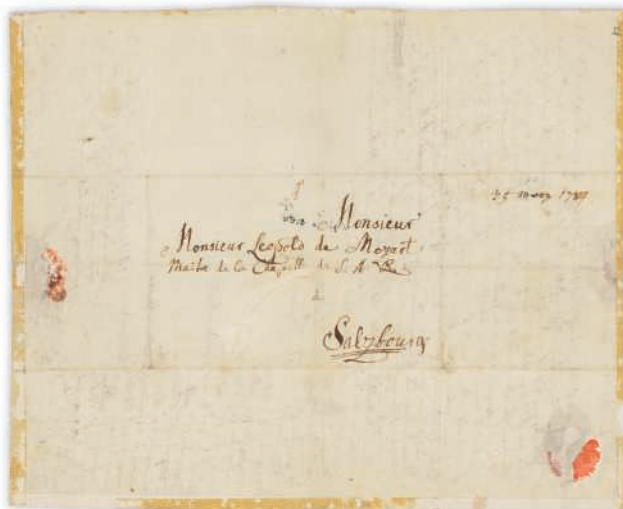 à
Monsieur
Monsieur Leopold de Mozart
Maitre de la Chapelle de S. A. R.
à
Salzbourg